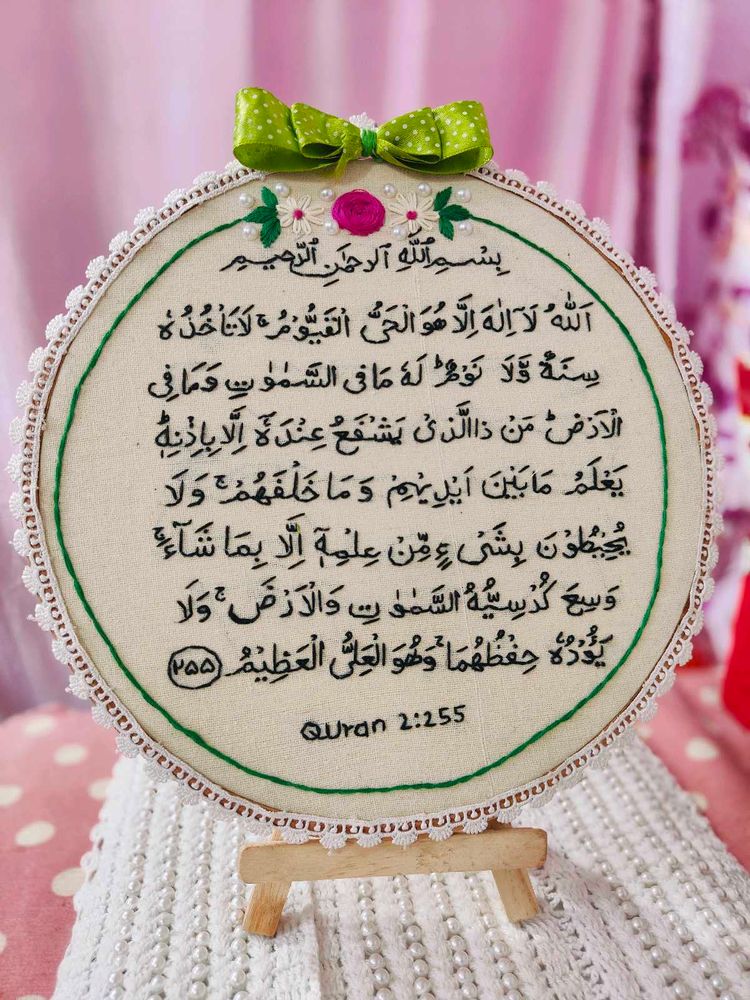 بِسْمِ اللّٰهِ الرحمٰنِ الرَّحيمِ
اَللّٰهُ لَاۤ اِلٰهَ اِلَّا هُوَ الْحَیُّ الْقَیُّوْمُ ۚ لَا تَاْخُذُهٗ
سِنَةٌ وَّلَا نَوْمٌ ؕ لَهٗ مَا فِی السَّمٰوٰتِ وَمَا فِی
الْاَرْضِ ؕ مَنْ ذَا الَّذِیْ یَشْفَعُ عِنْدَهٗۤ اِلَّا بِاِذْنِهٖ ؕ
یَعْلَمُ مَا بَیْنَ اَیْدِیْهِمْ وَمَا خَلْفَهُمْ ۚ وَلَا
یُحِیْطُوْنَ بِشَیْءٍ مِّنْ عِلْمِهٖۤ اِلَّا بِمَا شَآءَ ۚ
وَسِعَ كُرْسِیُّهُ السَّمٰوٰتِ وَالْاَرْضَ ۚ وَلَا
یَـُٔوْدُهٗ حِفْظُهُمَا ۚ وَهُوَ الْعَلِیُّ الْعَظِیْمُ ۲۵۵
Quran 2:255